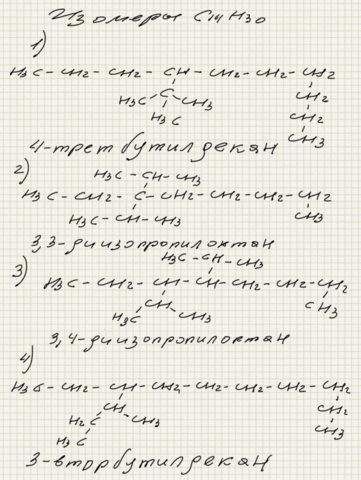 Изомеры C14H30
1)
H3C - CH2 - CH2 - CH - CH2 - CH2 - CH2
H3C - C - CH3 CH2
H3C CH2
CH3
4-третбутилдекан
2)
H3C - CH - CH3
H3C - CH2 - C - CH2 - CH2 - CH2 - CH2
H3C - CH - CH3 CH3
3,3-диизопропилоктан
3)
H3C - CH - CH3
H3C - CH2 - CH - CH - CH2 - CH2 - CH2
CH CH3
H3C CH3
3,4-диизопропилоктан
4)
H3C - CH2 - CH - CH2 - CH2 - CH2 - CH2 - CH2
CH CH2
H2C CH3 CH3
H3C
3-вторбутилдекан